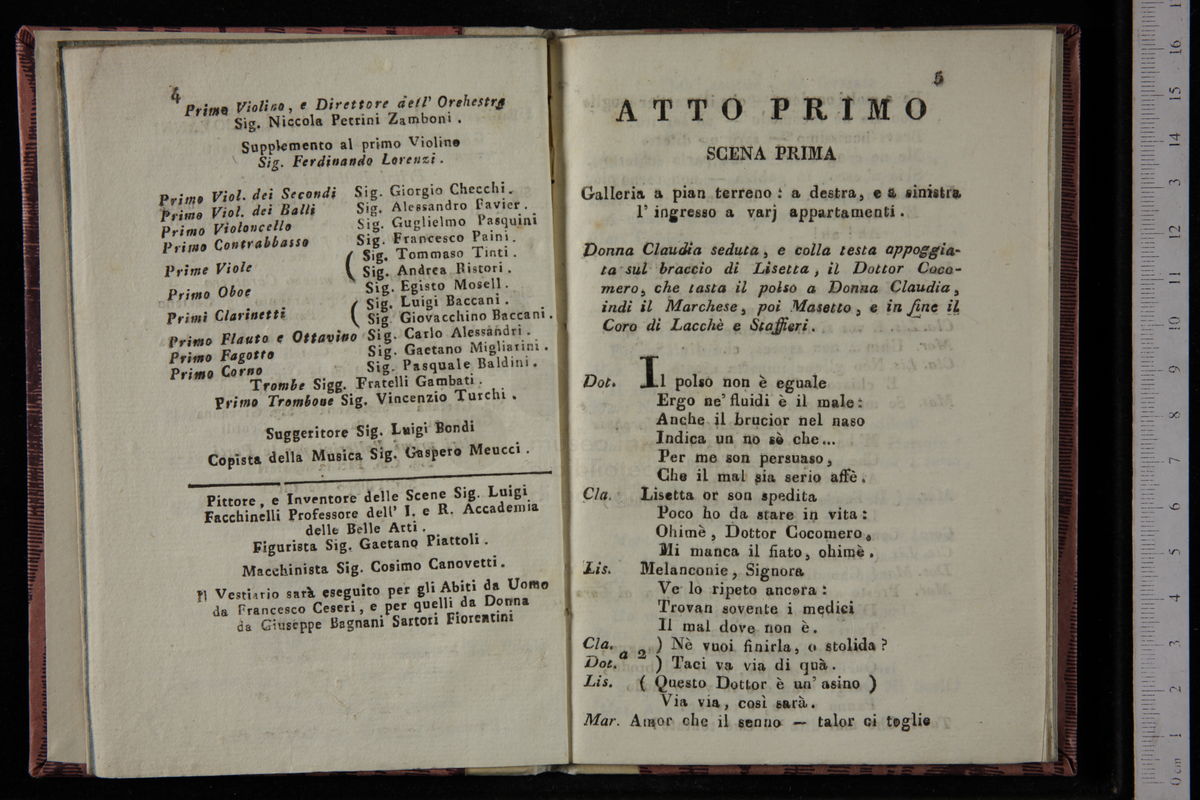 4
Primo Violino, e Direttore dell' Orchestra
Sig. Niccola Petrini Zamboni.
Supplemento al primo Violino
Sig. Ferdinando Lorenzi.
Primo Viol. dei Secondi Sig. Giorgio Checchi.
Primo Viol. dei Balli Sig. Alessandro Favier.
Primo Violoncello Sig. Guglielmo Pasquini
Primo Contrabbasso Sig. Francesco Paini.
Prime Viole ( Sig. Tommaso Tinti.
Sig. Andrea Ristori.
Primo Oboe Sig. Egisto Mosell.
Primi Clarinetti ( Sig. Luigi Baccani.
Sig Giovacchino Baccani.
Primo Flauto e Ottavino Sig. Carlo Alessandri.
Primo Fagotto Sig. Gaetano Migliarini.
Primo Corno Sig. Pasquale Baldini.
Trombe Sigg. Fratelli Gambati.
Primo Trombone Sig. Vincenzio Turchi.
Suggeritore Sig. Luigi Bondi
Copista della Musica Sig. Gaspero Meucci.
Pittore, e Inventore delle Scene Sig. Luigi
Facchinelli Professore dell' I. e R. Accademia
delle Belle Arti.
Figurista Sig. Gaetano Piattoli.
Macchinista Sig. Cosimo Canovetti.
Il Vestiario sarà eseguito per gli Abiti da Uomo
da Francesco Ceseri, e per quelli da Donna
da Giuseppe Bagnani Sartori Fiorentini
5
ATTO PRIMO
SCENA PRIMA
Galleria a pian terreno: a destra, e a sinistra
l' ingresso a varj appartamenti.
Donna Claudia seduta, e colla testa appoggia-
ta sul braccio di Lisetta, il Dottor Coco-
mero, che tasta il polso a Donna Claudia,
indi il Marchese, poi Masetto, e in fine il
Coro di Lacchè e Staffieri.
Dot. Il polso non è eguale
Ergo ne' fluidi è il male:
Anche il brucior nel naso
Indica un no sè che...
Per me son persuaso,
Che il mal sia serio affè.
Cla. Lisetta or son spedita
Poco ho da stare in vita:
Ohimè, Dottor Cocomero,
Mi manca il fiato, ohimè.
Lis. Melanconie, Signora
Ve lo ripeto ancora:
Trovan sovente i medici
Il mal dove non è.
Cla. ) Nè vuoi finirla, o stolida?
a 2
Dot. ) Taci va via di quà.
Lis. ( Questo Dottor è un' asino )
Via via, così sarà.
Mar. Amor che il senno — talor ci toglie
0 cm 1 2 3 4 5 6 7 8 9 10 11 12 13 14 15 16